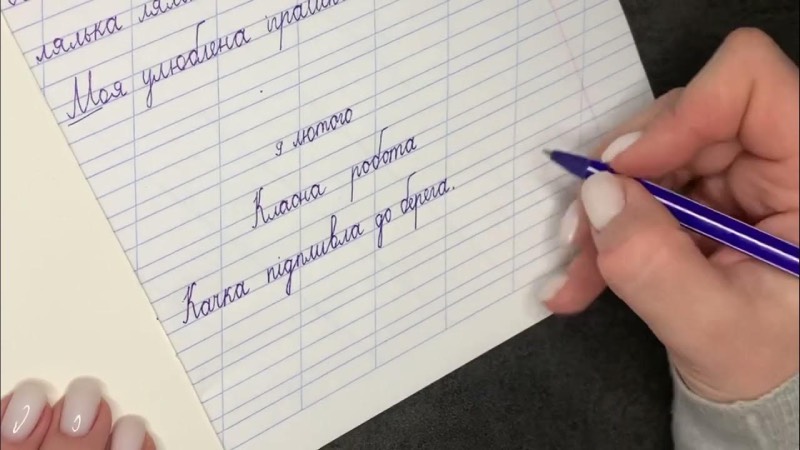 лялька
Моя улюблена
9 лютого
Класна робота
Качка підпливла до берега.